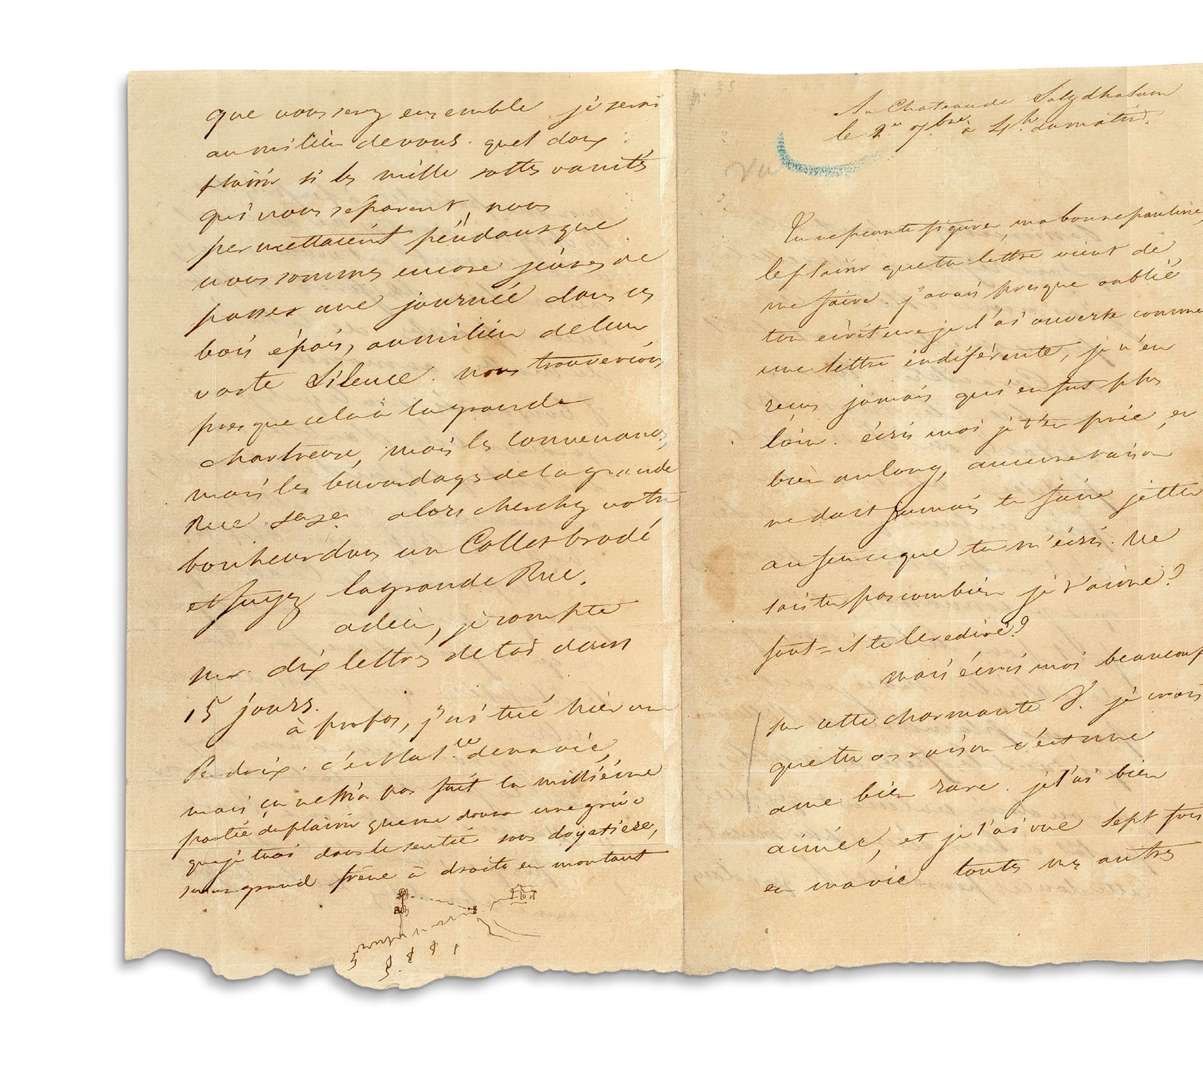 que vous serez ensemble je serai
au milieu de vous. quel doux
plaisir si les mille sottes vanités
qui nous séparent, nous
permettaient pendant que
nous sommes encore jeunes de
passer une journée dans ces
bois épais, au milieu de leur
vaste Silence. nous trouverions
presque cela à la grande
chartreuse, mais les convenances,
mais les bavardages de la grande
Rue alors cherchez votre
bonheur dans un Collet brodé
et fuyez la grande Rue.
adieu, je compte
sur dix lettres de toi dans
15 jours.
à propos, j'ai tué hier un
Perdrix. c'est la 1ere de ma vie,
mais ça ne m'a pas fait la millième
partie du plaisir que me donna une grive
que je tuai dans le sentier sous doyatieres,
sur un grand frêne à droite en montant
n. 35
Au Chateau de
le 2 7bre à 4h. du matin.
Vu
Tu ne peux te figurer, ma bonne pauline,
le plaisir que ta lettre vient de
me faire. j'avais presque oublié
ton écriture je l'ai ouverte comme
une lettre indiférente, je n'en
reçus jamais qui en fut plus
loin. écris moi je t'en prie, et
bien au long, aucune raison
ne doit jamais te faire jetter
au feu ce que tu m'écris. Ne
sais tu pas combien je t'aime?
faut-il te le redire?
mais écris moi beaucoup
sur cette charmante V. je crois
que tu as raison c'est une
ame bien rare. je l'ai bien
aimée, et je l'ai vue sept fois
en ma vie. toutes mes autres